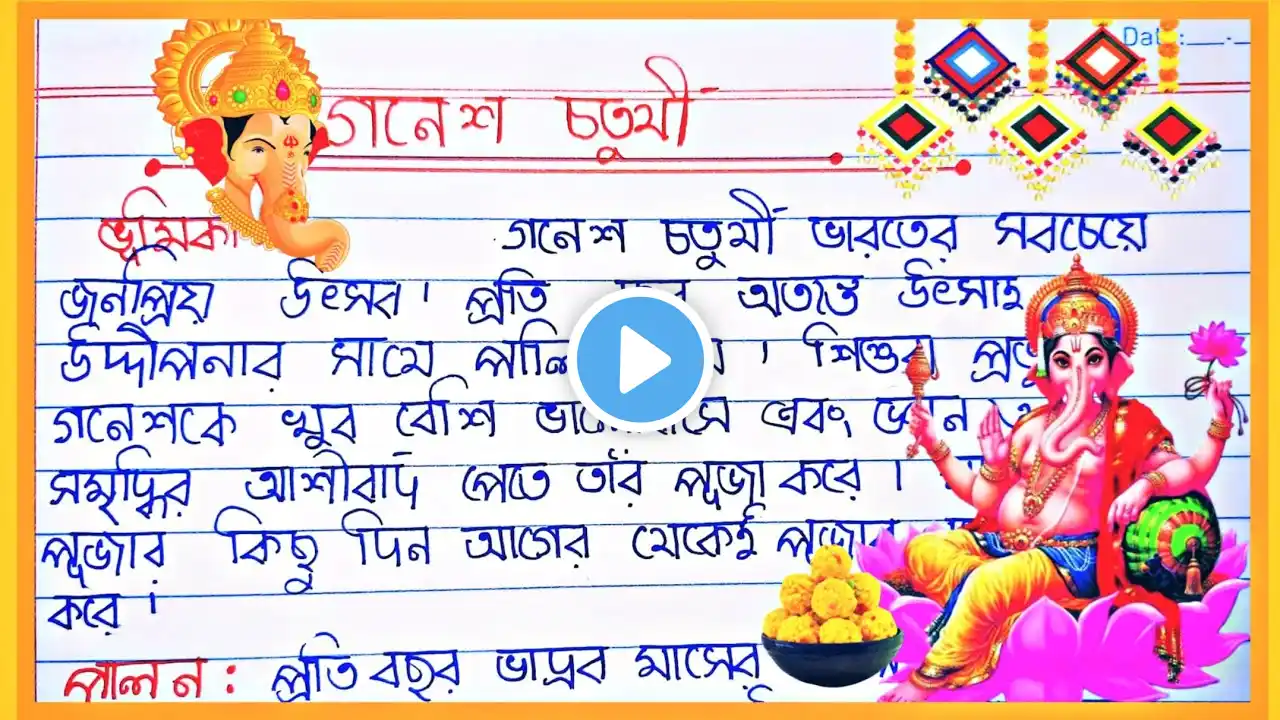 Date:
গনেশ চতুর্থী
ভূমিকা গনেশ চতুর্থী ভারতের সবচেয়ে
জনপ্রিয় উৎসব। প্রতি অত্যন্ত উৎসাহ
উদ্দীপনার সাথে । শিশুরা
গনেশকে খুব বেশি এবং
সমৃদ্ধির আশীর্বাদ পেতে তাঁর পূজা করে ।
পূজার কিছু দিন আগের থেকেই
করে ।
পালন : প্রতি বছর ভাদ্রব মাসের